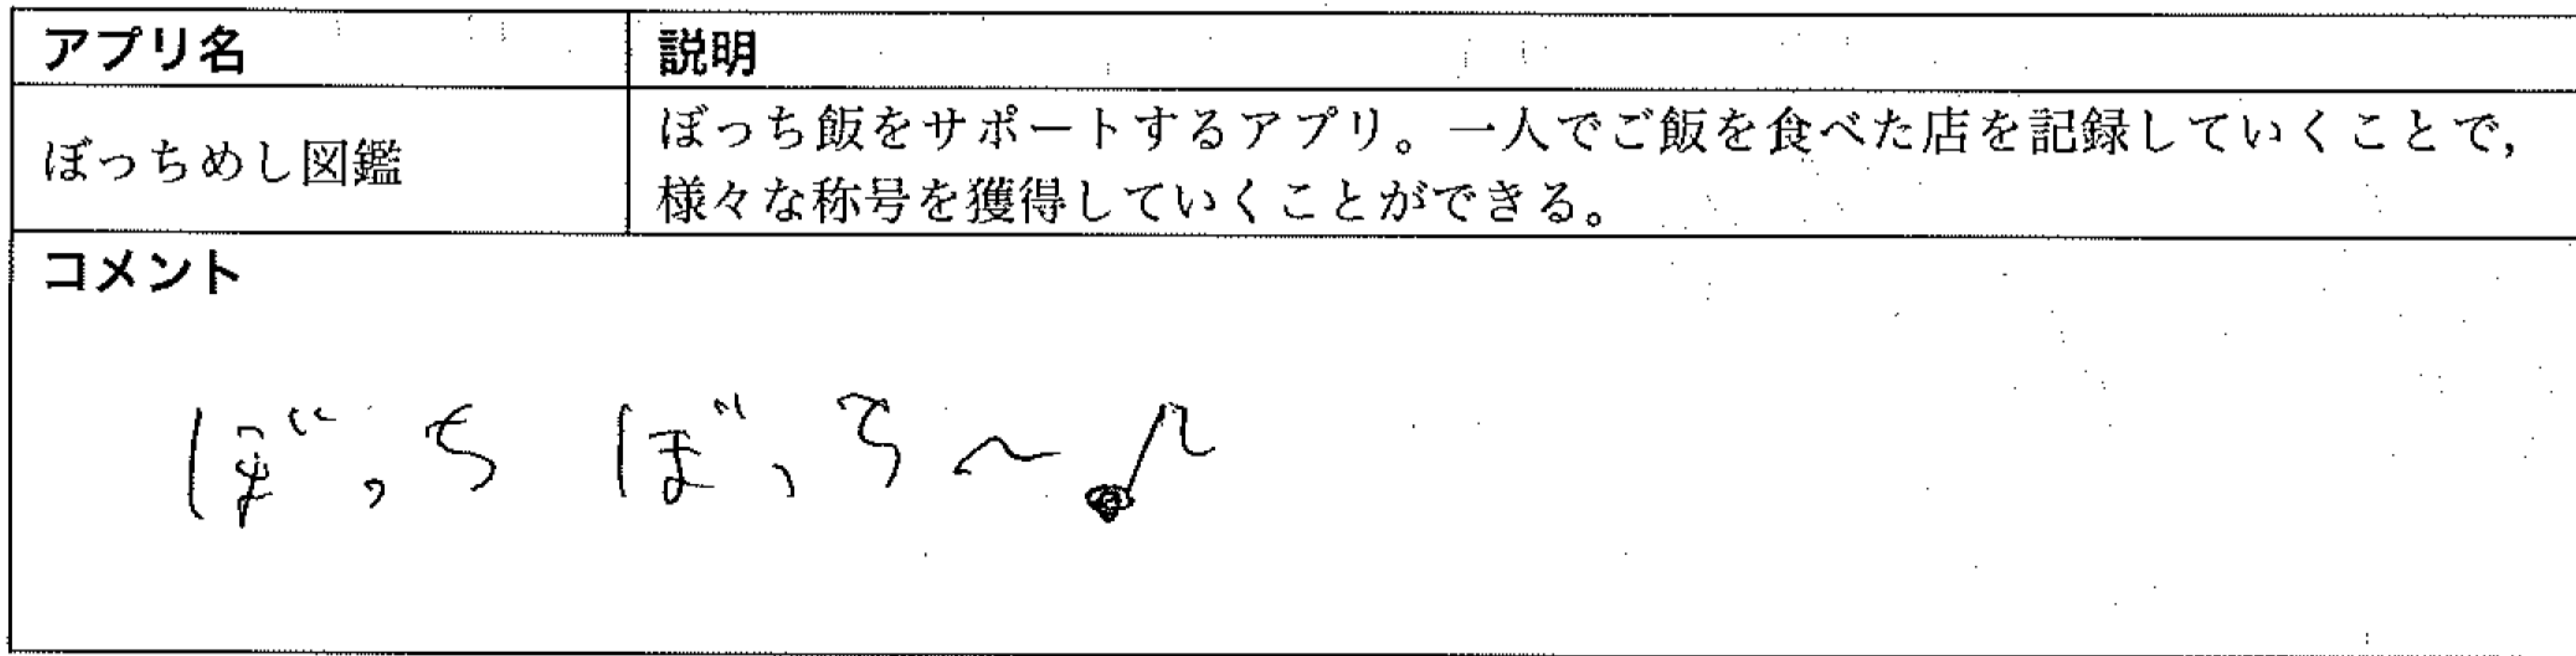 アプリ名
説明
ぼっちめし図鑑
ぼっち飯をサポートするアプリ。一人でご飯を食べた店を記録していくことで,
様々な称号を獲得していくことができる。
コメント
ぼっち ぼっち〜♪